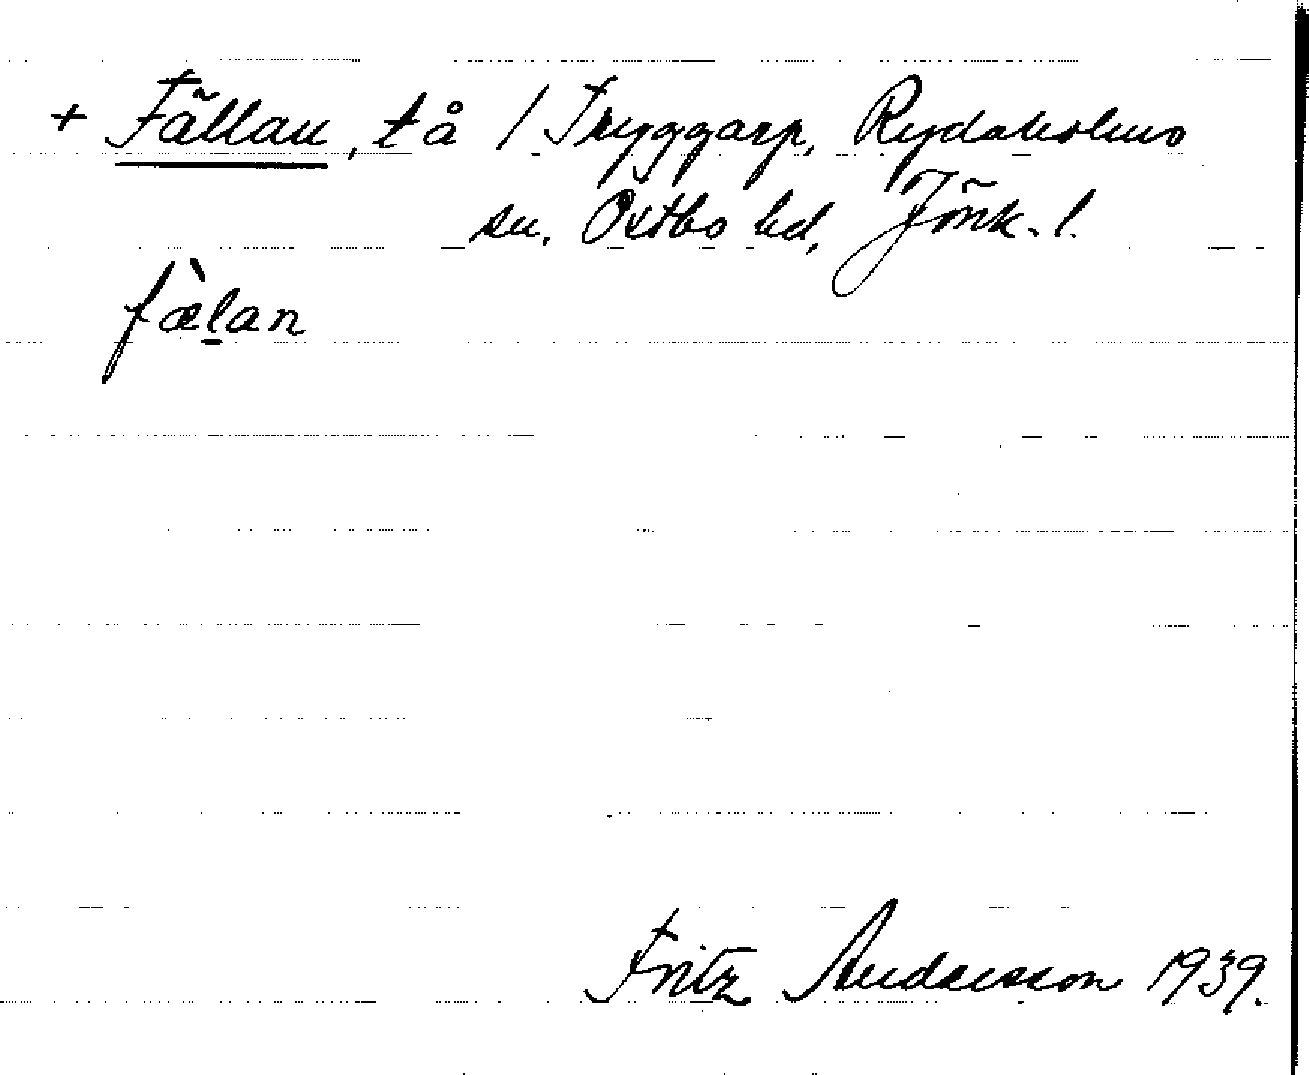 + Fällan, tå / Tryggarp, Rydaholms
sn. Östbo hd, Jönk. l.
fæ̀l̲an
Fritz Andersson 1939.